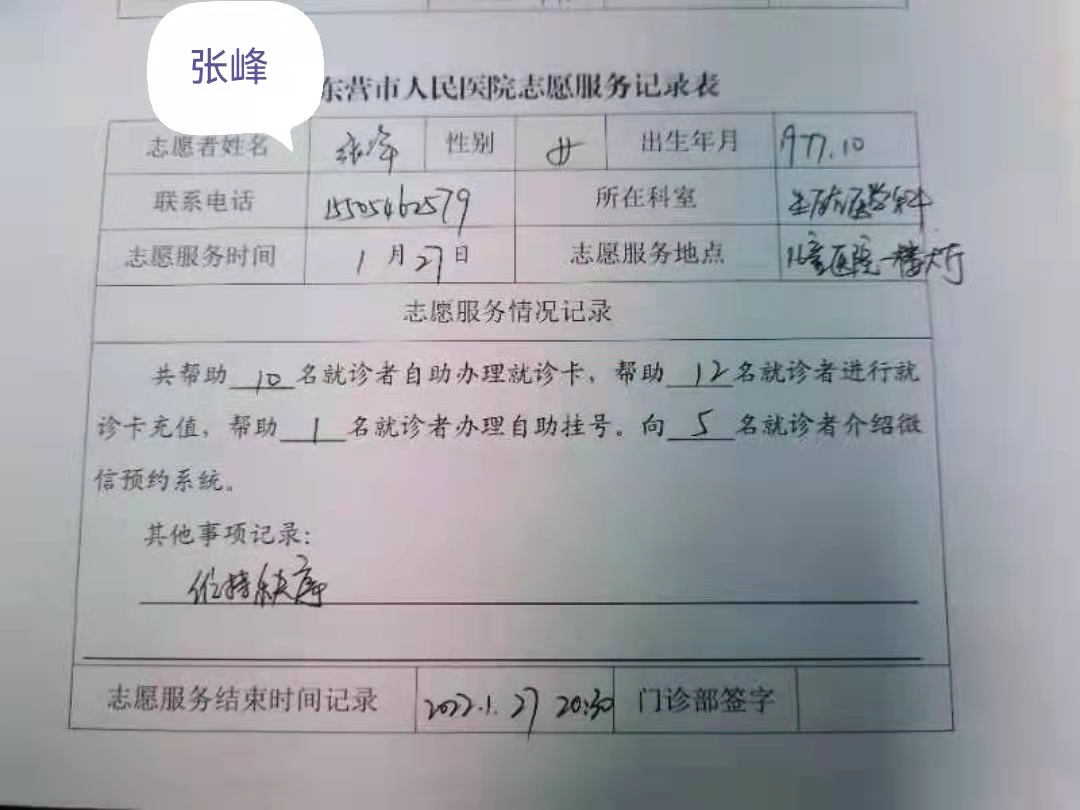 张峰
东营市人民医院志愿服务记录表
志愿者姓名 张峰 性别 女 出生年月 1977.10
联系电话 15505462579 所在科室 生殖医学科
志愿服务时间 1月27日 志愿服务地点 儿童医院一楼大厅
志愿服务情况记录
共帮助 10 名就诊者自助办理就诊卡，帮助 12 名就诊者进行就
诊卡充值，帮助 1 名就诊者办理自助挂号。向 5 名就诊者介绍微
信预约系统。
其他事项记录：
维持秩序
志愿服务结束时间记录 2022.1.27 20:30 门诊部签字